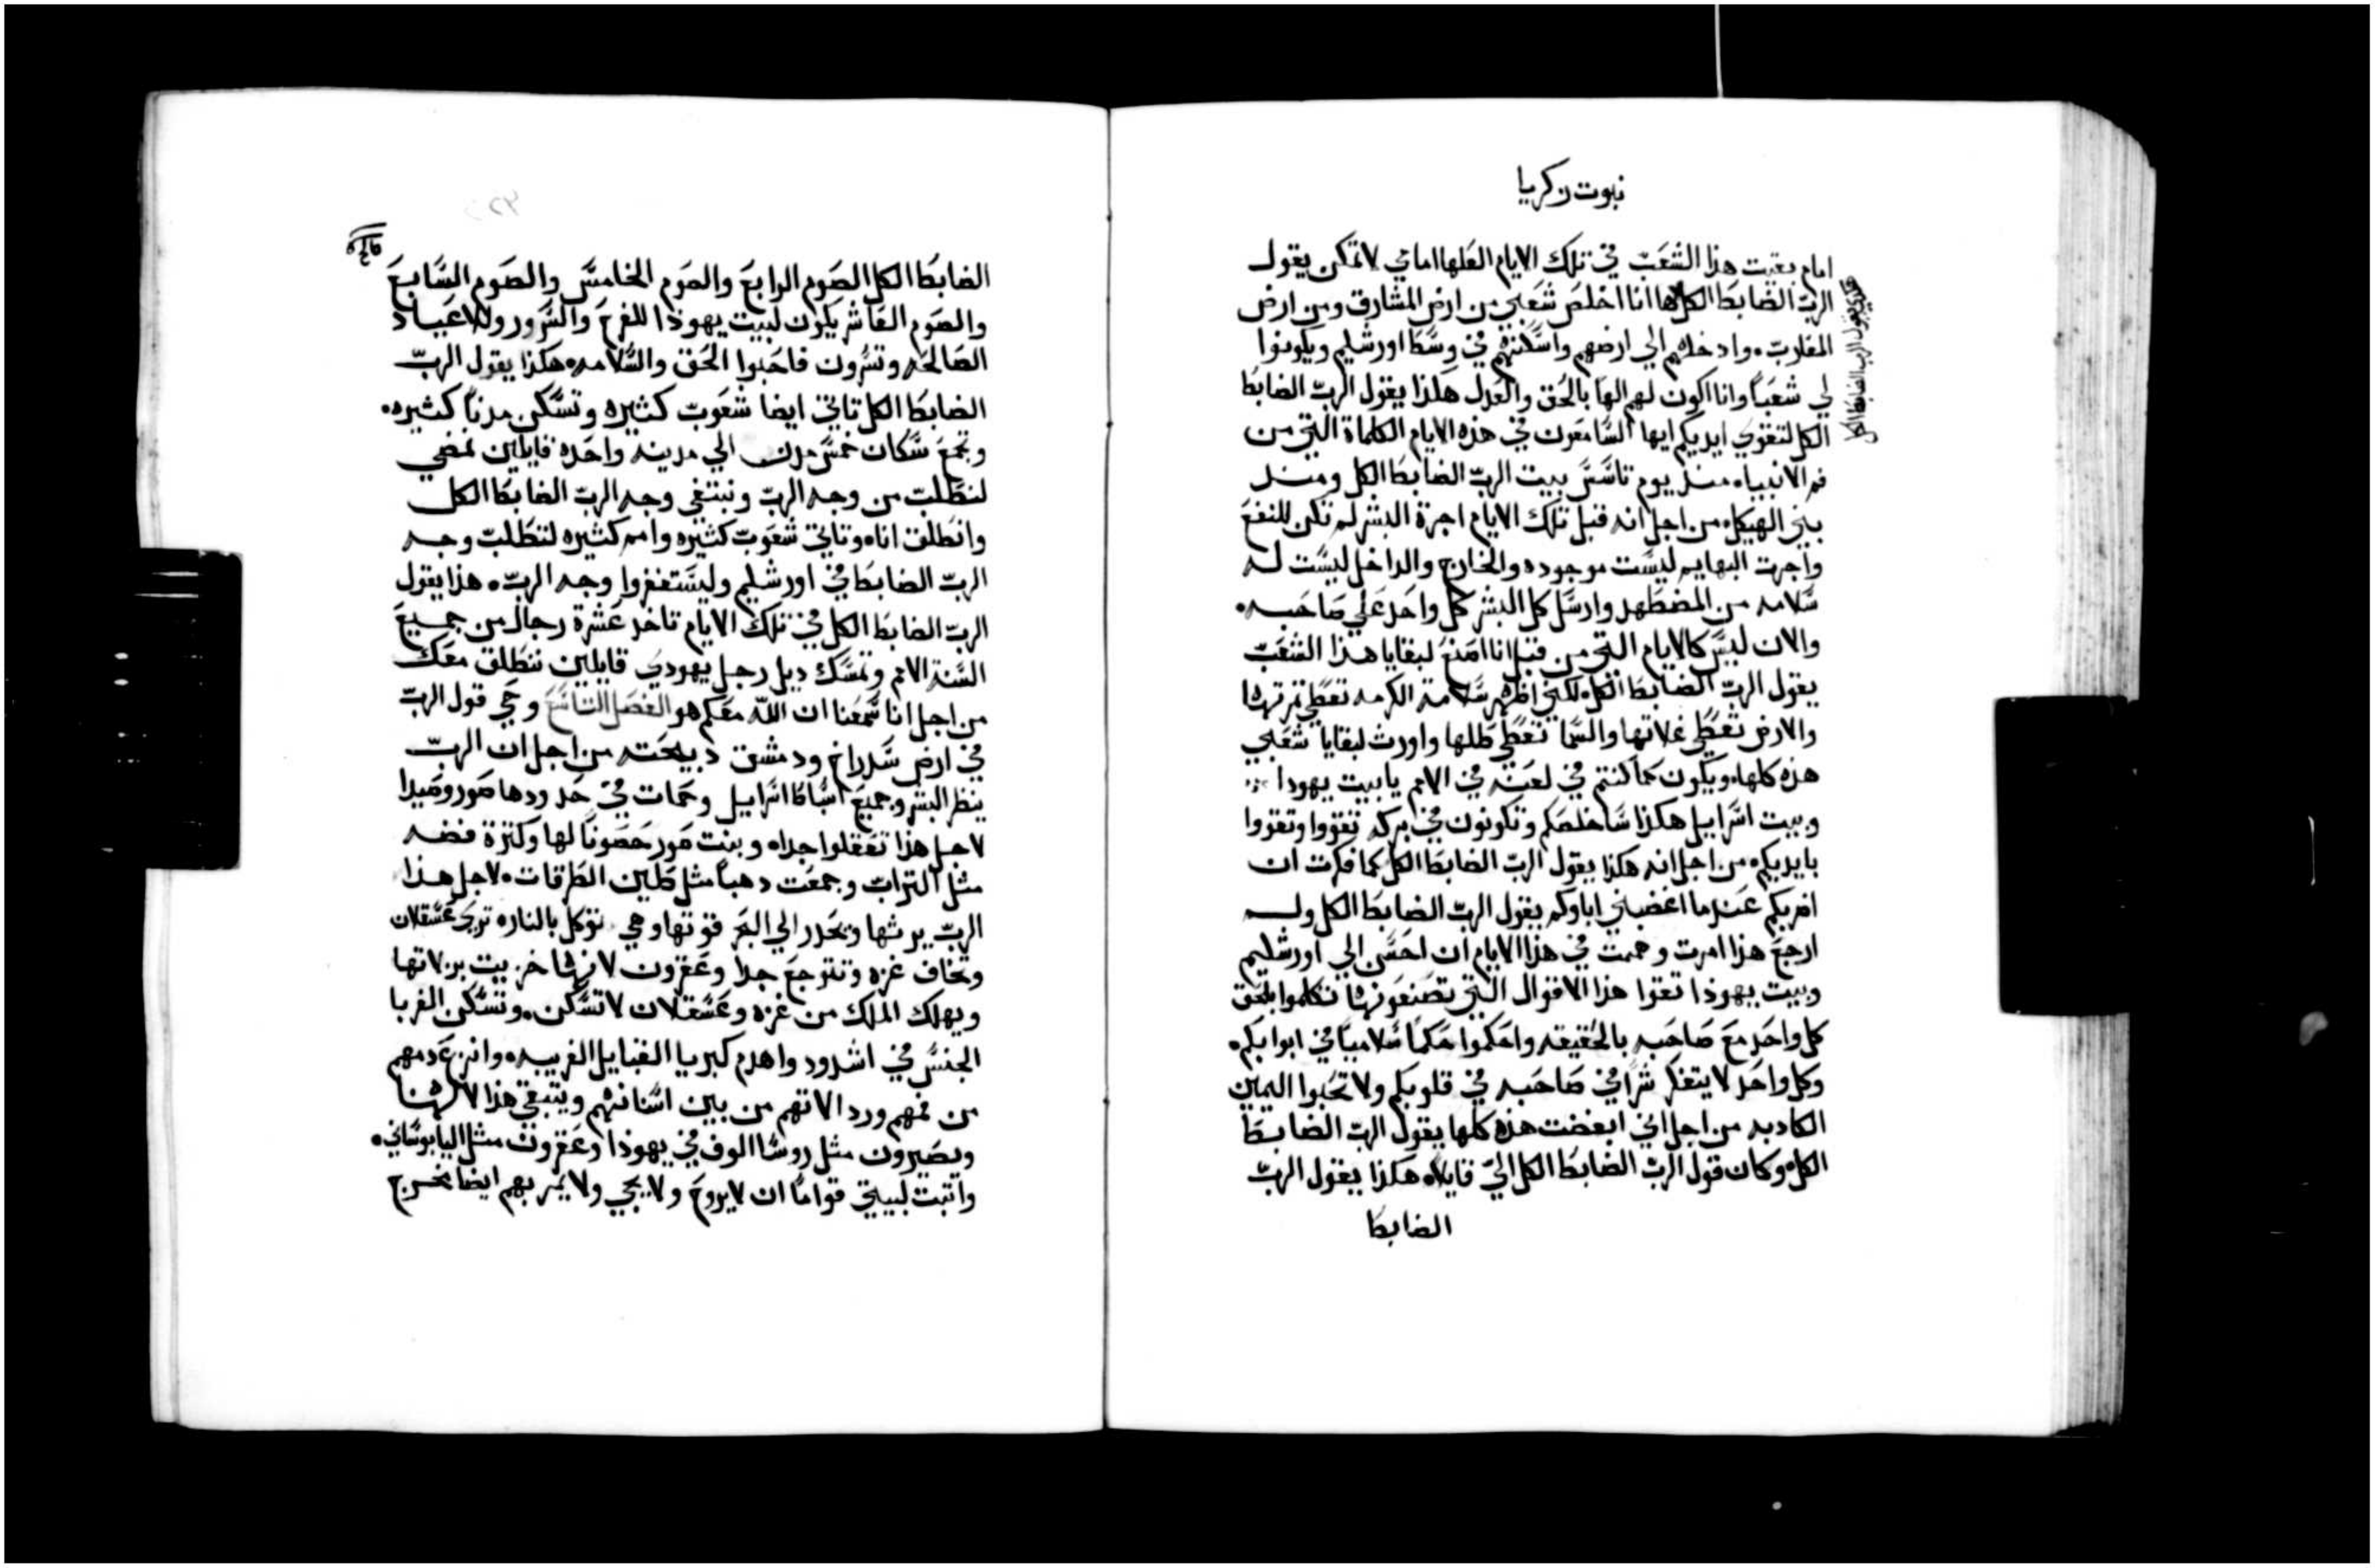 نبوت زكريا
امام بقيت هذا الشعب في تلك الايام العلها امامي لا تمكن يقول
الرب الضابط الكل ها انا اخلص شعبي من ارض المشارق ومن ارض
هكذي يقول الرب الضابط الكل
المغارب. وادخلهم الي ارضهم واسكنهم في وسط اورشليم ويكونوا
لي شعباً وانا اكون لهم الهاً بالحق والعدل هكذا يقول الرب الضابط
الكل لتقوي ايديكم ايها السامعون في هذه الايام الكلماة التي من
فم الانبياء منذ يوم تاسس بيت الرب الضابط الكل ومنذ
بني الهيكل. من اجل انه قبل تلك الايام اجرة البشر لم تكن للنفع
واجرت البهايم ليست موجوده والخارج والداخل ليست له
سلامه من المضطهد وارسل كل البشر كل واحد علي صاحبه.
والان ليس كالايام التي من قبل انا اصنع لبقايا هذا الشعب
يقول الرب الضابط الكل. لكني اظهر سلامة الكرمه تعطي ثمرتها
والارض تعطي غلاتها والسما تعطي طلها واورث لبقايا شعبي
هذه كلها. ويكون كما كنتم في لعنه في الامم يا بيت يهودا
وبيت اسرايل هكذا ساخلصكم وتكونون في بركه تقووا وتعزوا
بايديكم. من اجل انه هكذا يقول الرب الضابط الكل كما فكرت ان
اضربكم عندما اغضبني اباوكم يقول الرب الضابط الكل ولم
ارجع هذا امرت وهممت في هذا الايام ان احسن الي اورشليم
وبيت يهوذا تقوا هذا الاقوال التي تصنعونها تكلموا بالحق
كل واحد مع صاحبه بالحقيقه واحكموا حكماً سلامياً في ابوابكم.
وكل واحد لا يتفكر شراً في صاحبه في قلوبكم ولا تحبوا اليمين
الكادبه من اجل اني ابغضت هذه كلها يقول الرب الضابط
الكل. وكان قول الرب الضابط الكل الي قايلاً. هكذا يقول الرب
الضابط
الضابط الكل الصوم الرابع والصوم الخامس والصوم السابع
والصوم العاشر يكون لبيت يهوذا للفرح والسرور وللاعياد
الصالحه وتسرون فاحبوا الحق والسلامه. هكذا يقول الرب
الضابط الكل تاتي ايضا شعوب كثيره وتسكن مدناً كثيره.
وتجمع سكان خمس مدن الي مدينه واحده قايلين نمضي
لنطلب من وجه الرب ونبتغي وجه الرب الضابط الكل
وانطلق انا. وتاتي شعوب كثيره وامم كثيره لتطلب وجه
الرب الضابط في اورشليم وليستغفروا وجه الرب. هذا يقول
الرب الضابط الكل في تلك الايام تاخذ عشرة رجال من جميع
السنة الامم وتمسك ديل رجل يهودي قايلين ننطلق معك
من اجل انا سمعنا ان الله معكم هو الفصل التاسع وحي قول الرب
في ارض سدراخ ودمشق دبيحته من اجل ان الرب
ينظر البشر وجميع اسباط اسرايل وحمات في حدودها صور وصيدا
لاجل هذا تعقلوا جدا. وبنت صور حصوناً لها وكنزة فضه
مثل التراب وجمعت دهباً مثل طين الطرقات. لاجل هذا
الرب يرثها ويحدر الي البحر قوتها وهي توكل بالنار. تري عسقلان
وتخاف غزه وتتوجع جدا وعقرون لانها خزيت بزلاتها
ويهلك الملك من غزه وعسقلان لا تسكن. وتسكن الغربا
الجنس في اشدود واهدم كبريا القبايل الغريبه. وانزع دمهم
من فمهم ورد الاتهم من بين اسنانهم ويتبقي هذا لالهنا
ويصيرون مثل روسا الوف في يهوذا وعقرون مثل اليابوساني.
واتبت لبيتي قواماً ان لا يروح ولا يجي ولا يمر بهم ايضا مخرج